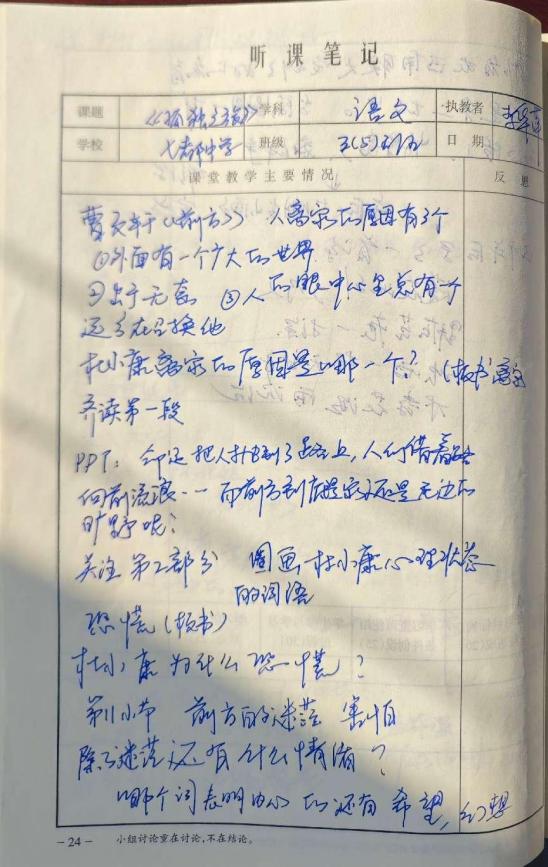 听课笔记
课题 《孤独之旅》 学科 语文 执教者
学校 七都中学 班级 日期
课堂教学主要情况 反思
曹文轩《前方》 人离家的原因有3个
①外面有一个广大的世界
②出于无奈 ③人的眼中心里总有一个
远方在召换他
杜小康离家的原因是哪一个? (板书 离家
齐读第一段
PPT: 命运把人抛到了路上,人们借着路
向前流浪…而前方到底是家还是无边的
旷野呢?
关注第二部分 圈画杜小康心理状态
的词语
恐慌(板书)
杜小康为什么恐慌?
第1小节 前方的迷茫 害怕
除了迷茫还有什么情绪?
哪个词表明内心的还有希望,幻想
-24- 小组讨论重在讨论,不在结论。